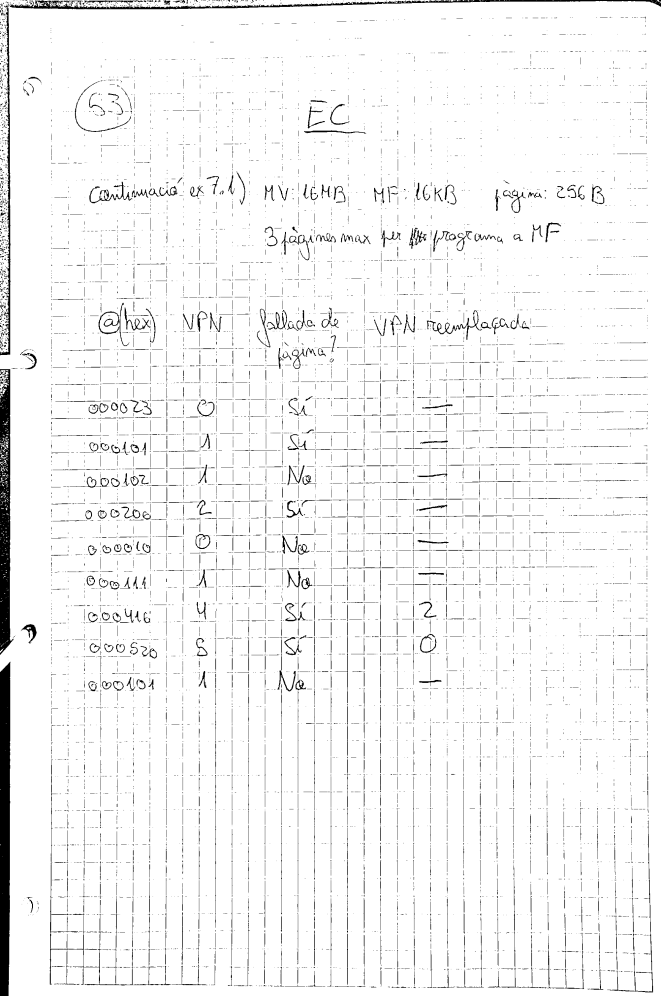 53
EC
Continuació ex 7.1) MV: 16MB MF: 16KB pàgina: 256B
3 pàgines max per programa a MF
@(hex) VPN fallada de VPN reemplaçada
pàgina?
000023 0 Sí —
000101 1 Sí —
000102 1 No —
000200 2 Sí —
000010 0 No —
000111 1 No —
000416 4 Sí 2
000520 5 Sí 0
000101 1 No —